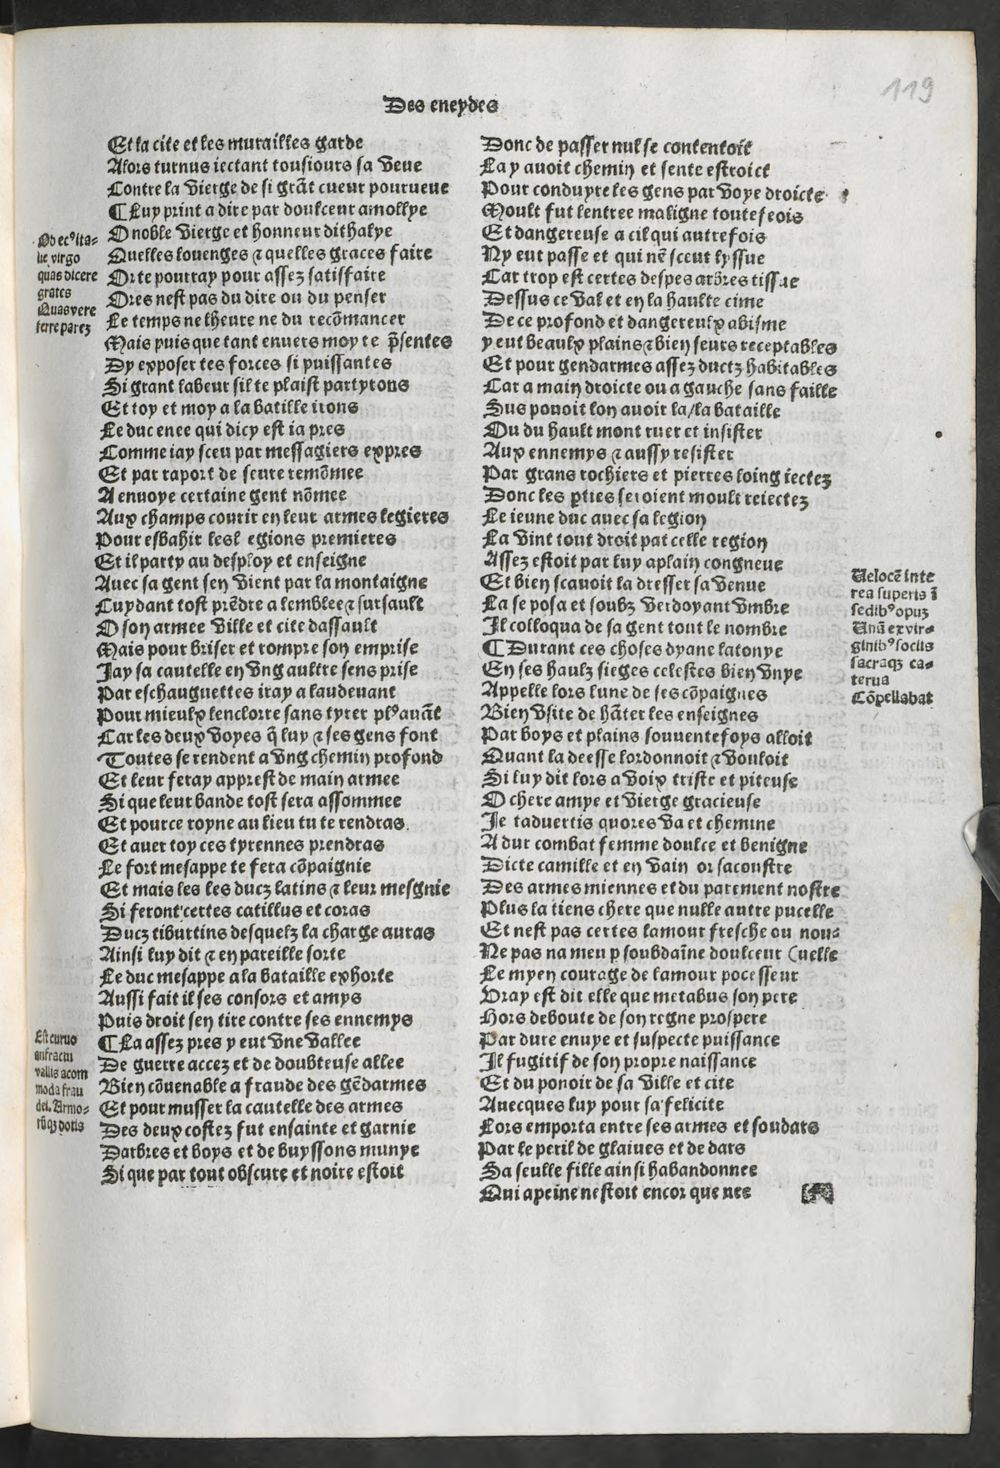 119
Des eneydes
Et la cite et les murailles garde
Alors turnus iectant tousiours sa veue
Contre la vierge de si grãt cueur pourueue
¶ Luy print a dire par doulceur amollye
O noble vierge et honneur dithalye
Quelles louenges ⁊ quelles graces faire
Orte pourray pour assez satisfaire
Ores nest pas du dire ou du penser
Le temps ne lheure ne du recõmancer
Mais puis que tant enuers moy te p̃sentes
Dy exposer tes forces si puissantes
Si grant labeur sil te plaist partyrons
Et toy et moy a la batille irons
Le duc enee qui dicy est ia pres
Comme iay sceu par messagiers expres
Et par raport de seure remõmee
A enuoye certaine gent nõmee
Aux champs courir en leur armes legieres
Pour esbahir lesl egions premieres
Et il party au desploy et enseigne
Auec sa gent sen vient par la montaigne
Cuydant tost prẽdre a lemblee ⁊ sursault
O son armee ville et cite dassault
Mais pour briser et rompre son emprise
Jay sa cautelle en vng aultre sens prise
Par eschauguettes iray a laudeuant
Pour mieulx lenclorre sans tyrer plꝰ auãt
Car les deux voyes q̃ luy ⁊ ses gens font
Toutes se rendent a vng chemin profond
Et leur feray apprest de main armee
Si que leur bande tost sera assommee
Et pource royne au lieu tu te rendras
Et auer toy ces tyrennes prendras
Le fort mesappe te fera cõpaignie
Et mais les les ducz latins ⁊ leur mesgnie
Si feront certes catillus et coras
Ducz tiburtins desquelz la charge auras
Ainsi luy dit ⁊ en pareille sorte
Le duc mesappe a la bataille exhorte
Aussi fait il ses consors et amys
Puis droit sen tire contre ses ennemys
¶ La assez pres y eut vne vallee
De guerre accez et de doubteuse allee
Bien cõuenable a fraude des gẽdarmes
Et pour musser la cautelle des armes
Des deux costez fut ensainte et garnie
Darbres et boys et de buyssons munye
Si que par tout obscure et noire estoit
Ob ecꝰ ita-
lie virgo
quas dicere
grates
Quas vere
ferre parez
Est curuo
anfractu
vallis acom
moda frau
dei. Armo-
rũqz dolis
Donc de passer nul se contentoit
La y auoit chemin et sente estroict
Pour conduyre les gens par voye droicte
Moult fut lentree maligne toutefeois
Et dangereuse a cil qui autrefois
Ny eut passe et qui nẽ sceut lyssue
Car trop est certes despes arbres tissue
Dessus ce val et en la haulte cime
De ce profond et dangereulx abisme
y eut beaulx plains ⁊ bien seurs receptables
Et pour gendarmes assez ductz habitables
Car a main droicte ou a gauche sans faille
Sus pouoit lon auoir la/la bataille
Ou du hault mont ruer et insister
Aux ennemys ⁊ aussy resister
Par grans rochiers et pierres loing iectez
Donc les p̱ties seroient moult reiectez
Le ieune duc auec sa legion
La vint tout droit pat celle region
Assez estoit par luy aplain congneue
Et bien scauoit la dresser sa venue
La se posa et soubz verdoyant vmbre
Il colloqua de sa gent tout le nombre
¶ Durant ces choses dyane latonye
En ses haulz sieges celestes bien vnye
Appelle lors lune de ses cõpaignes
Bien vsite de hãter les enseignes
Par boys et plains souuentefoys alloit
Quant la deesse lordonnoit ⁊ vouloit
Si luy dit lors a voix triste et piteuse
O chere amye et vierge gracieuse
Je taduertis quores va et chemine
A dur combat femme doulce et benigne
Dicte camille et en vain or sacoustre
Des armes miennes et du parement nostre
Plus la tiens chere que nulle autre pucelle
Et nest pas certes lamour fresche ou nou-
Ne pas na meu p soubdaĩne doulceur (uelle
Le myen courage de lamour pocesseur
Vray est dit elle que metabus son pere
Hors deboute de son regne prospere
Par dure enuye et suspecte puissance
Il fugitif de son propre naissance
Et du pouoir de sa ville et cite
Auecques luy pour sa felicite
Lors emporta entre ses armes et soudars
Par le peril de glaiues et de dars
Sa seulle fille ainsi habandonnee
Qui apeine nestoit encor que nee
Velocẽ inte
rea superis ĩ
sedibꝰ opuz
Unã ex vir-
ginibꝰ sociis
sacraqz ca-
terua
Cõpellabat